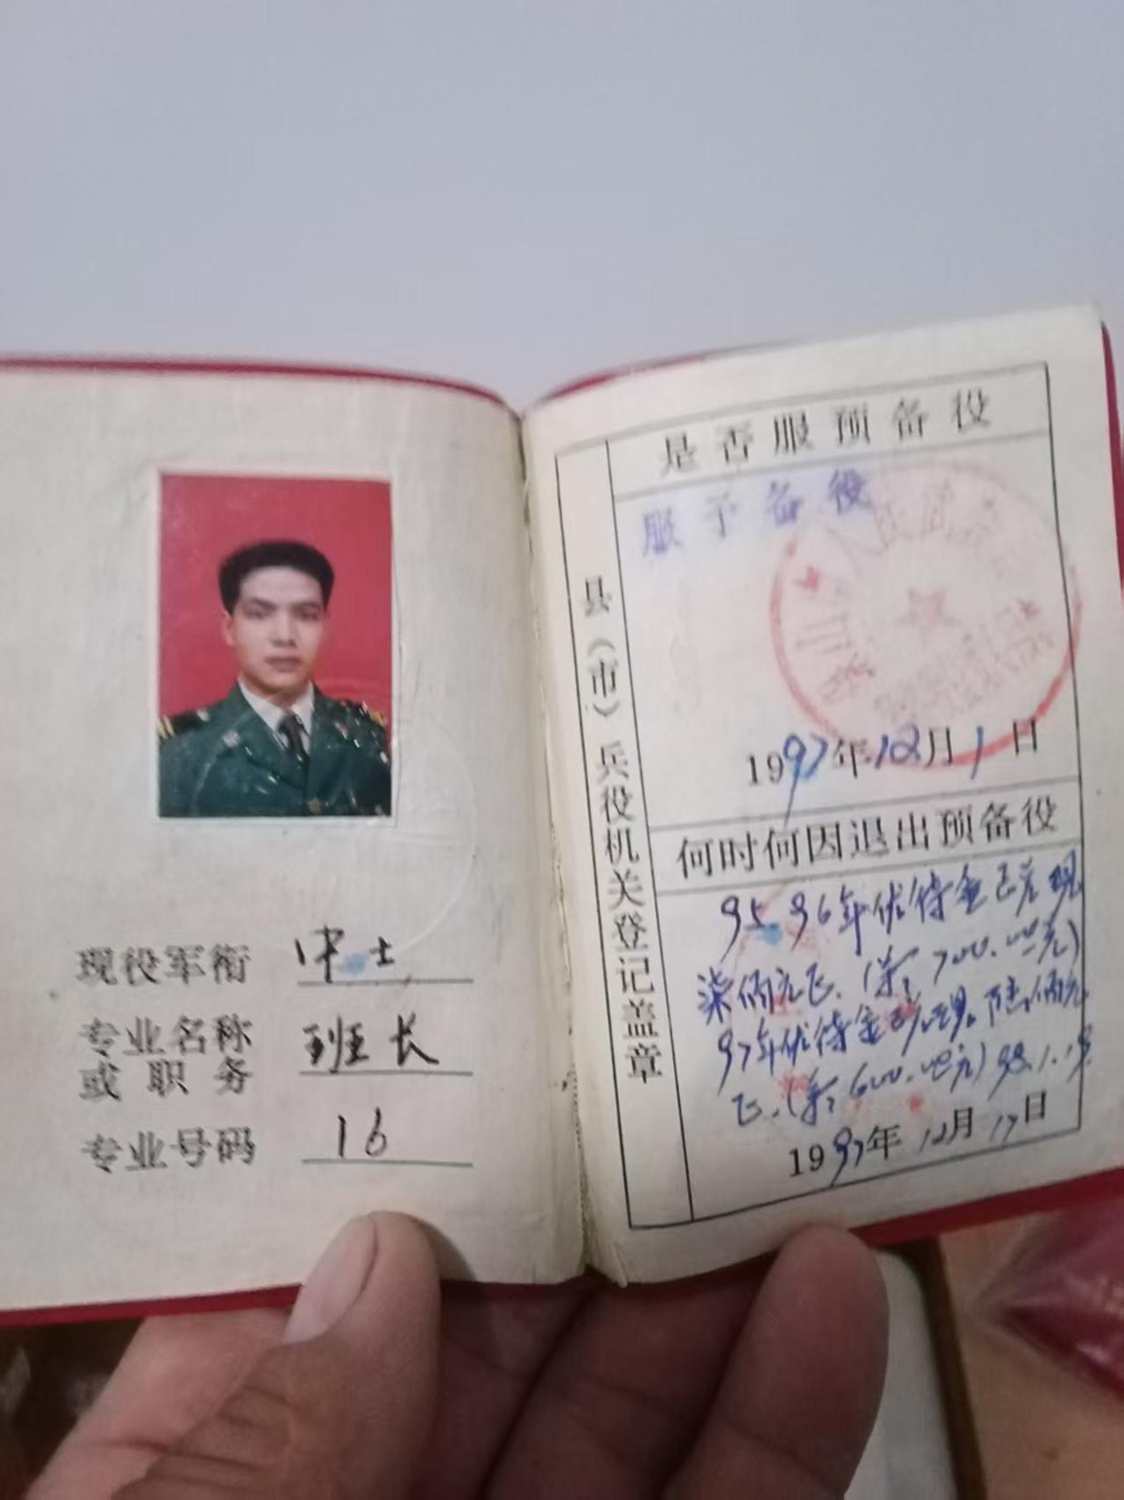 现役军衔 中士
专业名称
或职务 班长
专业号码 16
县（市）兵役机关登记盖章
是否服预备役
服予备役
1997年12月1日
何时何因退出预备役
95.96年优待金已兑现
柒佰元正.(￥:700.00元)
97年优待金已兑现.陆佰元
正.(￥:600.00元)98.1.19
1997年12月17日